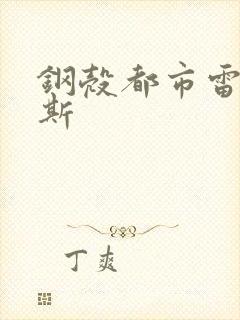 鋼殼都市雷
斯
丁爽